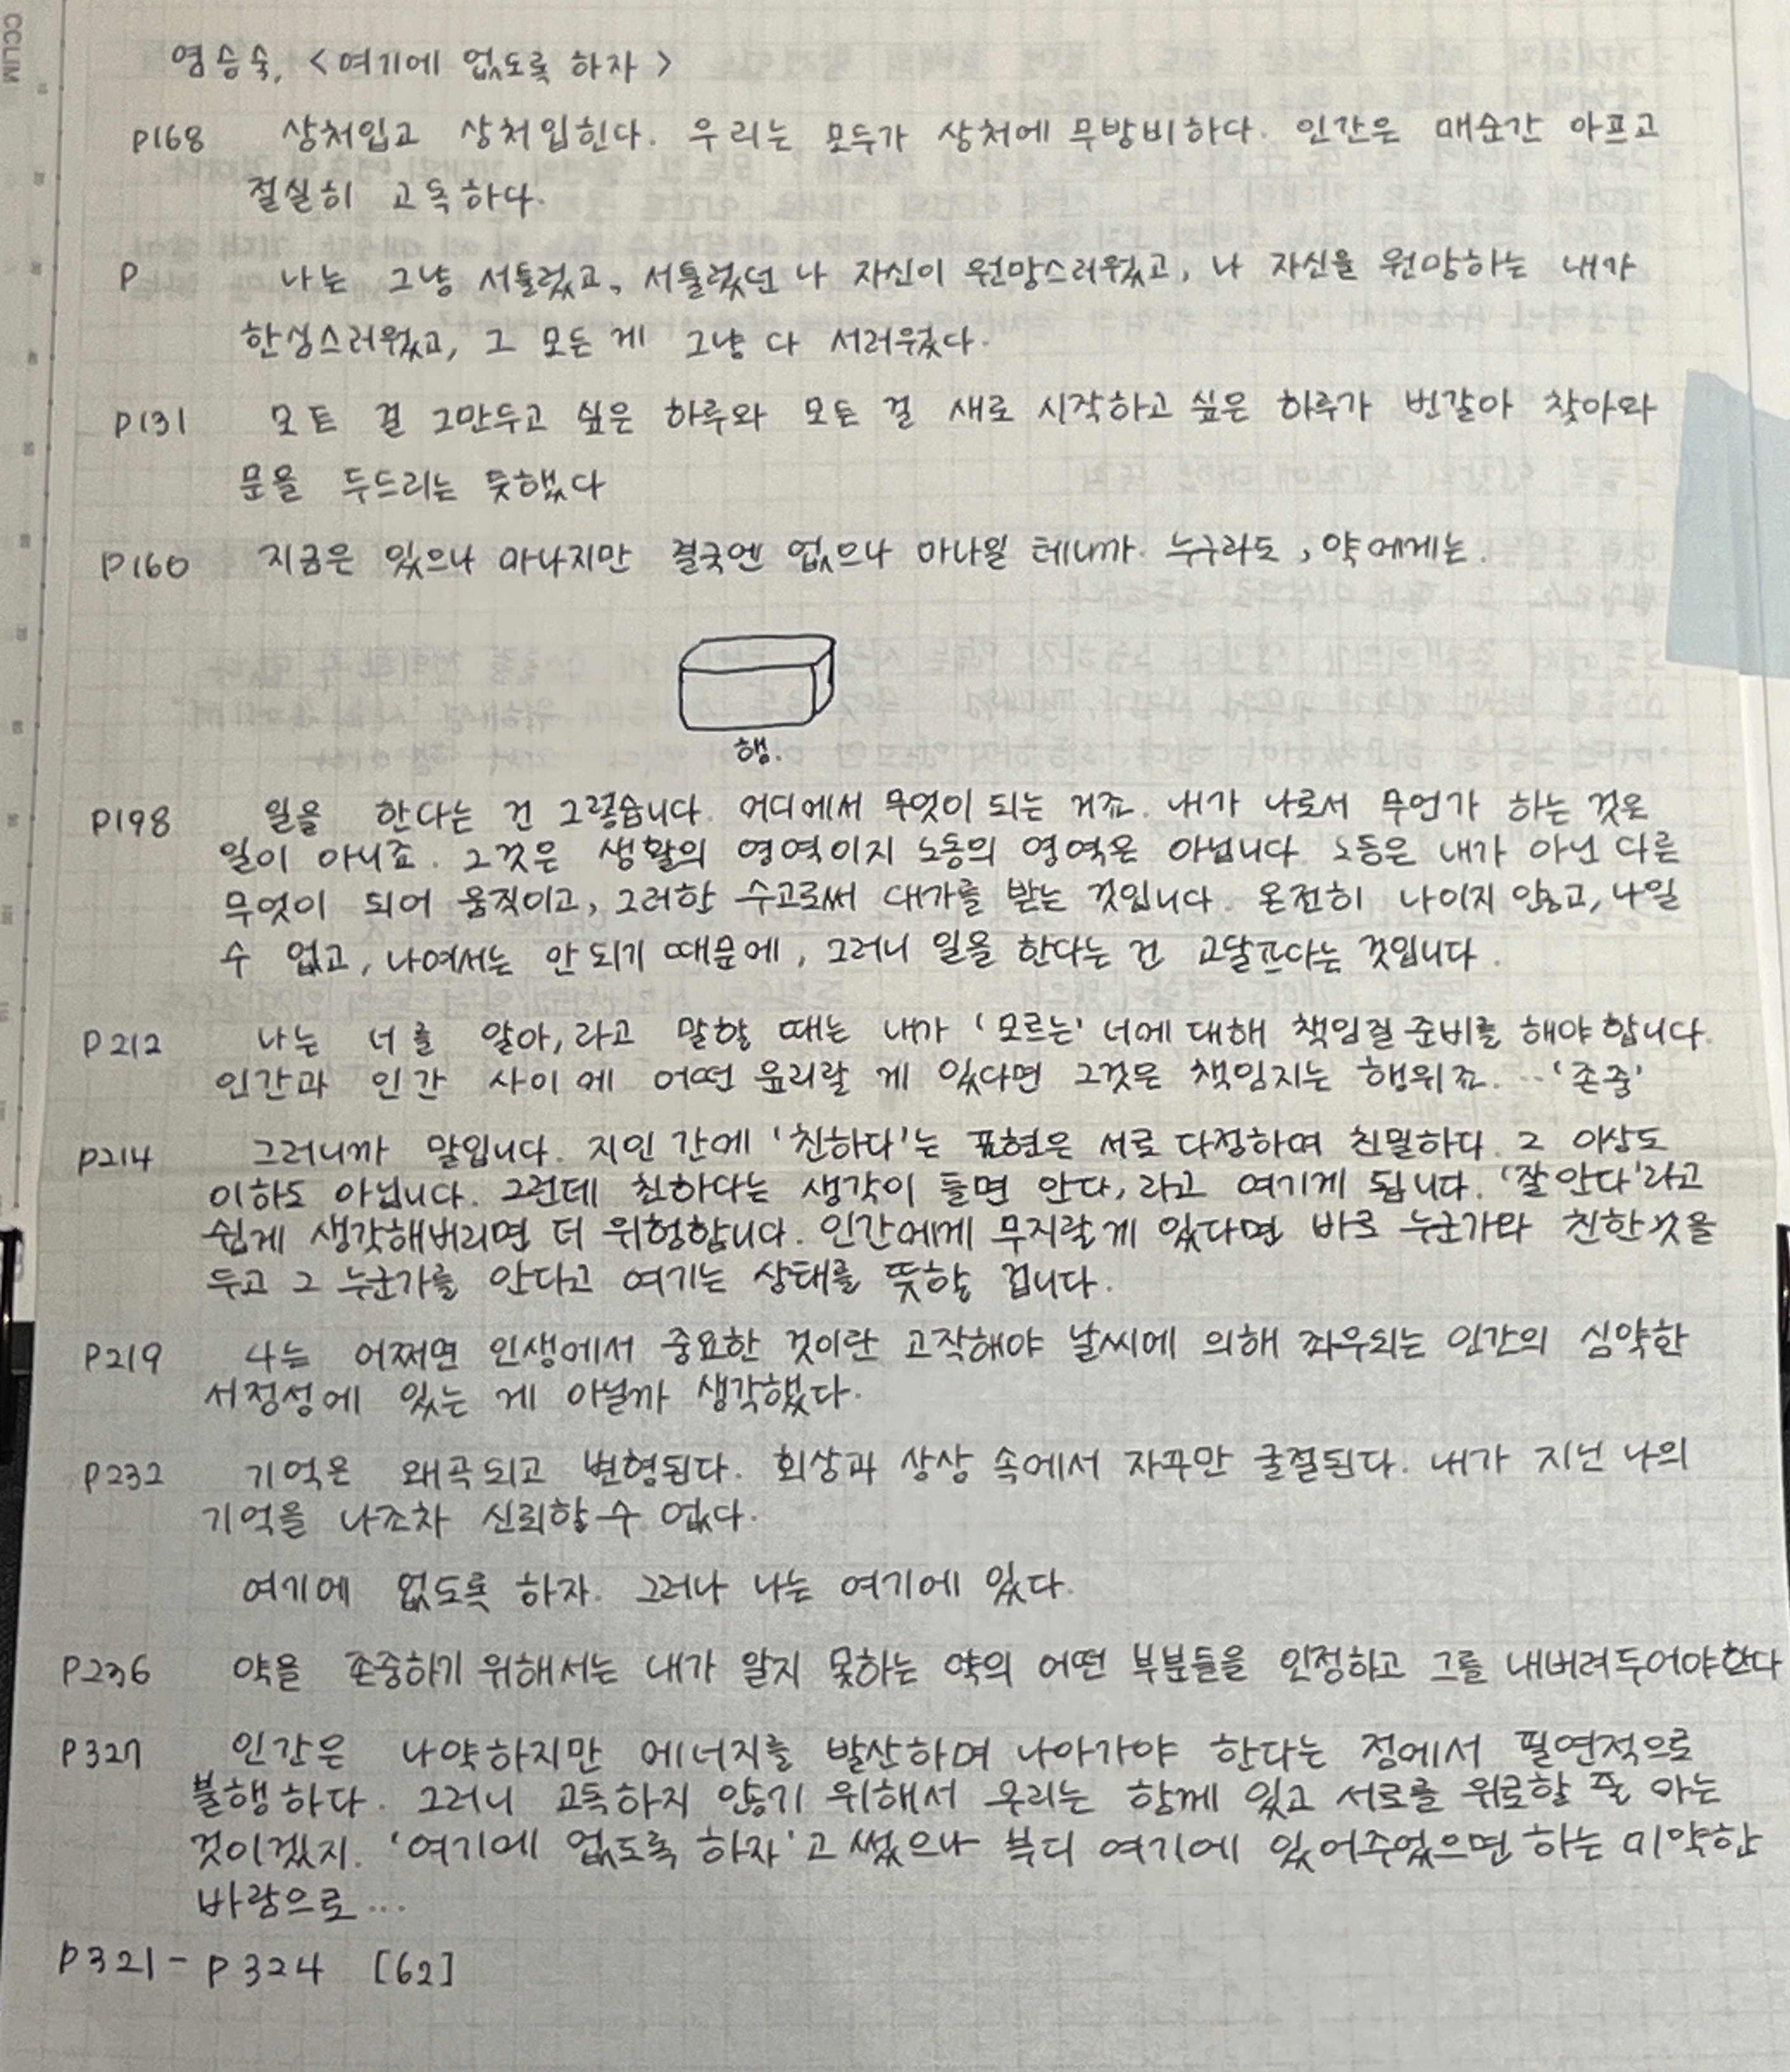 CCLIM
염승숙, <여기에 없도록 하자>
P168 상처입고 상처입힌다. 우리는 모두가 상처에 무방비하다. 인간은 매순간 아프고
절실히 고독하다.
P 나는 그냥 서툴렀고, 서툴렀던 나 자신이 원망스러웠고, 나 자신을 원망하는 내가
한심스러웠고, 그 모든 게 그냥 다 서러웠다.
P131 모든 걸 그만두고 싶은 하루와 모든 걸 새로 시작하고 싶은 하루가 번갈아 찾아와
문을 두드리는 듯했다
P160 지금은 있으나 마나지만 결국엔 없으나 마나일 테니까. 누구라도, 약에게는.
햄.
P198 일을 한다는 건 그렇습니다. 어디에서 무엇이 되는 거죠. 내가 나로서 무언가 하는 것은
일이 아니죠. 그것은 생활의 영역이지 노동의 영역은 아닙니다. 노동은 내가 아닌 다른
무엇이 되어 움직이고, 그러한 수고로써 대가를 받는 것입니다. 온전히 나이지 않고, 나일
수 없고, 나여서는 안 되기 때문에, 그러니 일을 한다는 건 고달프다는 것입니다.
P212 나는 너를 알아, 라고 말할 때는 내가 '모르는' 너에 대해 책임질 준비를 해야 합니다.
인간과 인간 사이에 어떤 윤리랄 게 있다면 그것은 책임지는 행위죠. … '존중'
P214 그러니까 말입니다. 지인 간에 '친하다'는 표현은 서로 다정하며 친밀하다. 그 이상도
이하도 아닙니다. 그런데 친하다는 생각이 들면 안다, 라고 여기게 됩니다. '잘 안다'라고
쉽게 생각해버리면 더 위험합니다. 인간에게 무지랄 게 있다면 바로 누군가와 친한 것을
두고 그 누군가를 안다고 여기는 상태를 뜻할 겁니다.
P219 나는 어쩌면 인생에서 중요한 것이란 고작해야 날씨에 의해 좌우되는 인간의 심약한
서정성에 있는 게 아닐까 생각했다.
P232 기억은 왜곡되고 변형된다. 회상과 상상 속에서 자꾸만 굴절된다. 내가 지닌 나의
기억을 나조차 신뢰할 수 없다.
여기에 없도록 하자. 그러나 나는 여기에 있다.
P236 약을 존중하기 위해서는 내가 알지 못하는 약의 어떤 부분들을 인정하고 그를 내버려두어야한다
P327 인간은 나약하지만 에너지를 발산하며 나아가야 한다는 점에서 필연적으로
불행하다. 그러니 고독하지 않기 위해서 우리는 함께 있고 서로를 위로할 줄 아는
것이겠지. '여기에 없도록 하자'고 썼으나 부디 여기에 있어주었으면 하는 미약한
바람으로…
P321 - P324 [62]